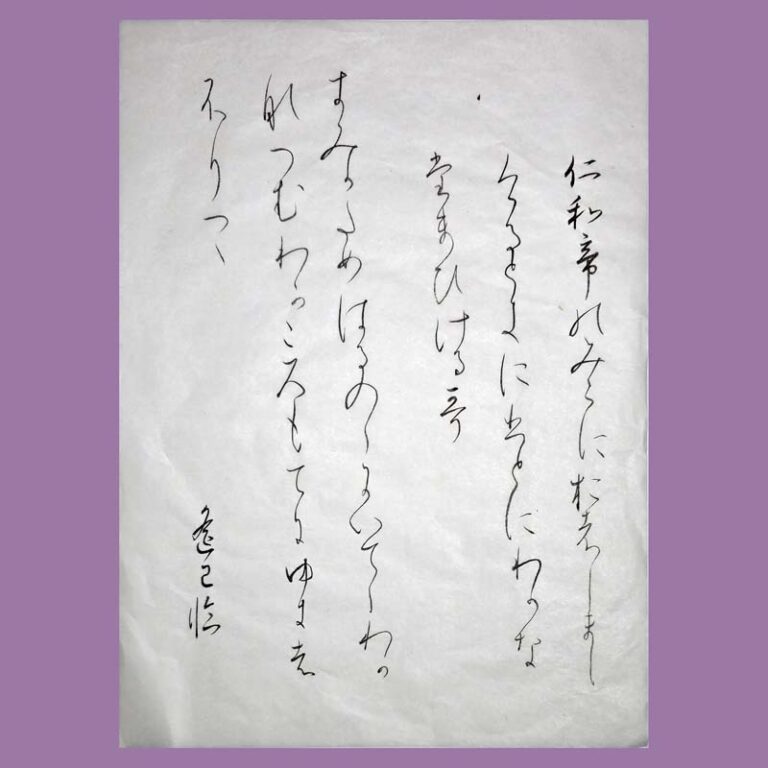 仁和帝のみこにおはしまし
けるときにひとにわかな
たまひける哥
きみかためはるのゝにいてゝわか
なつむわかころもてにゆきは
ふりつゝ
臨